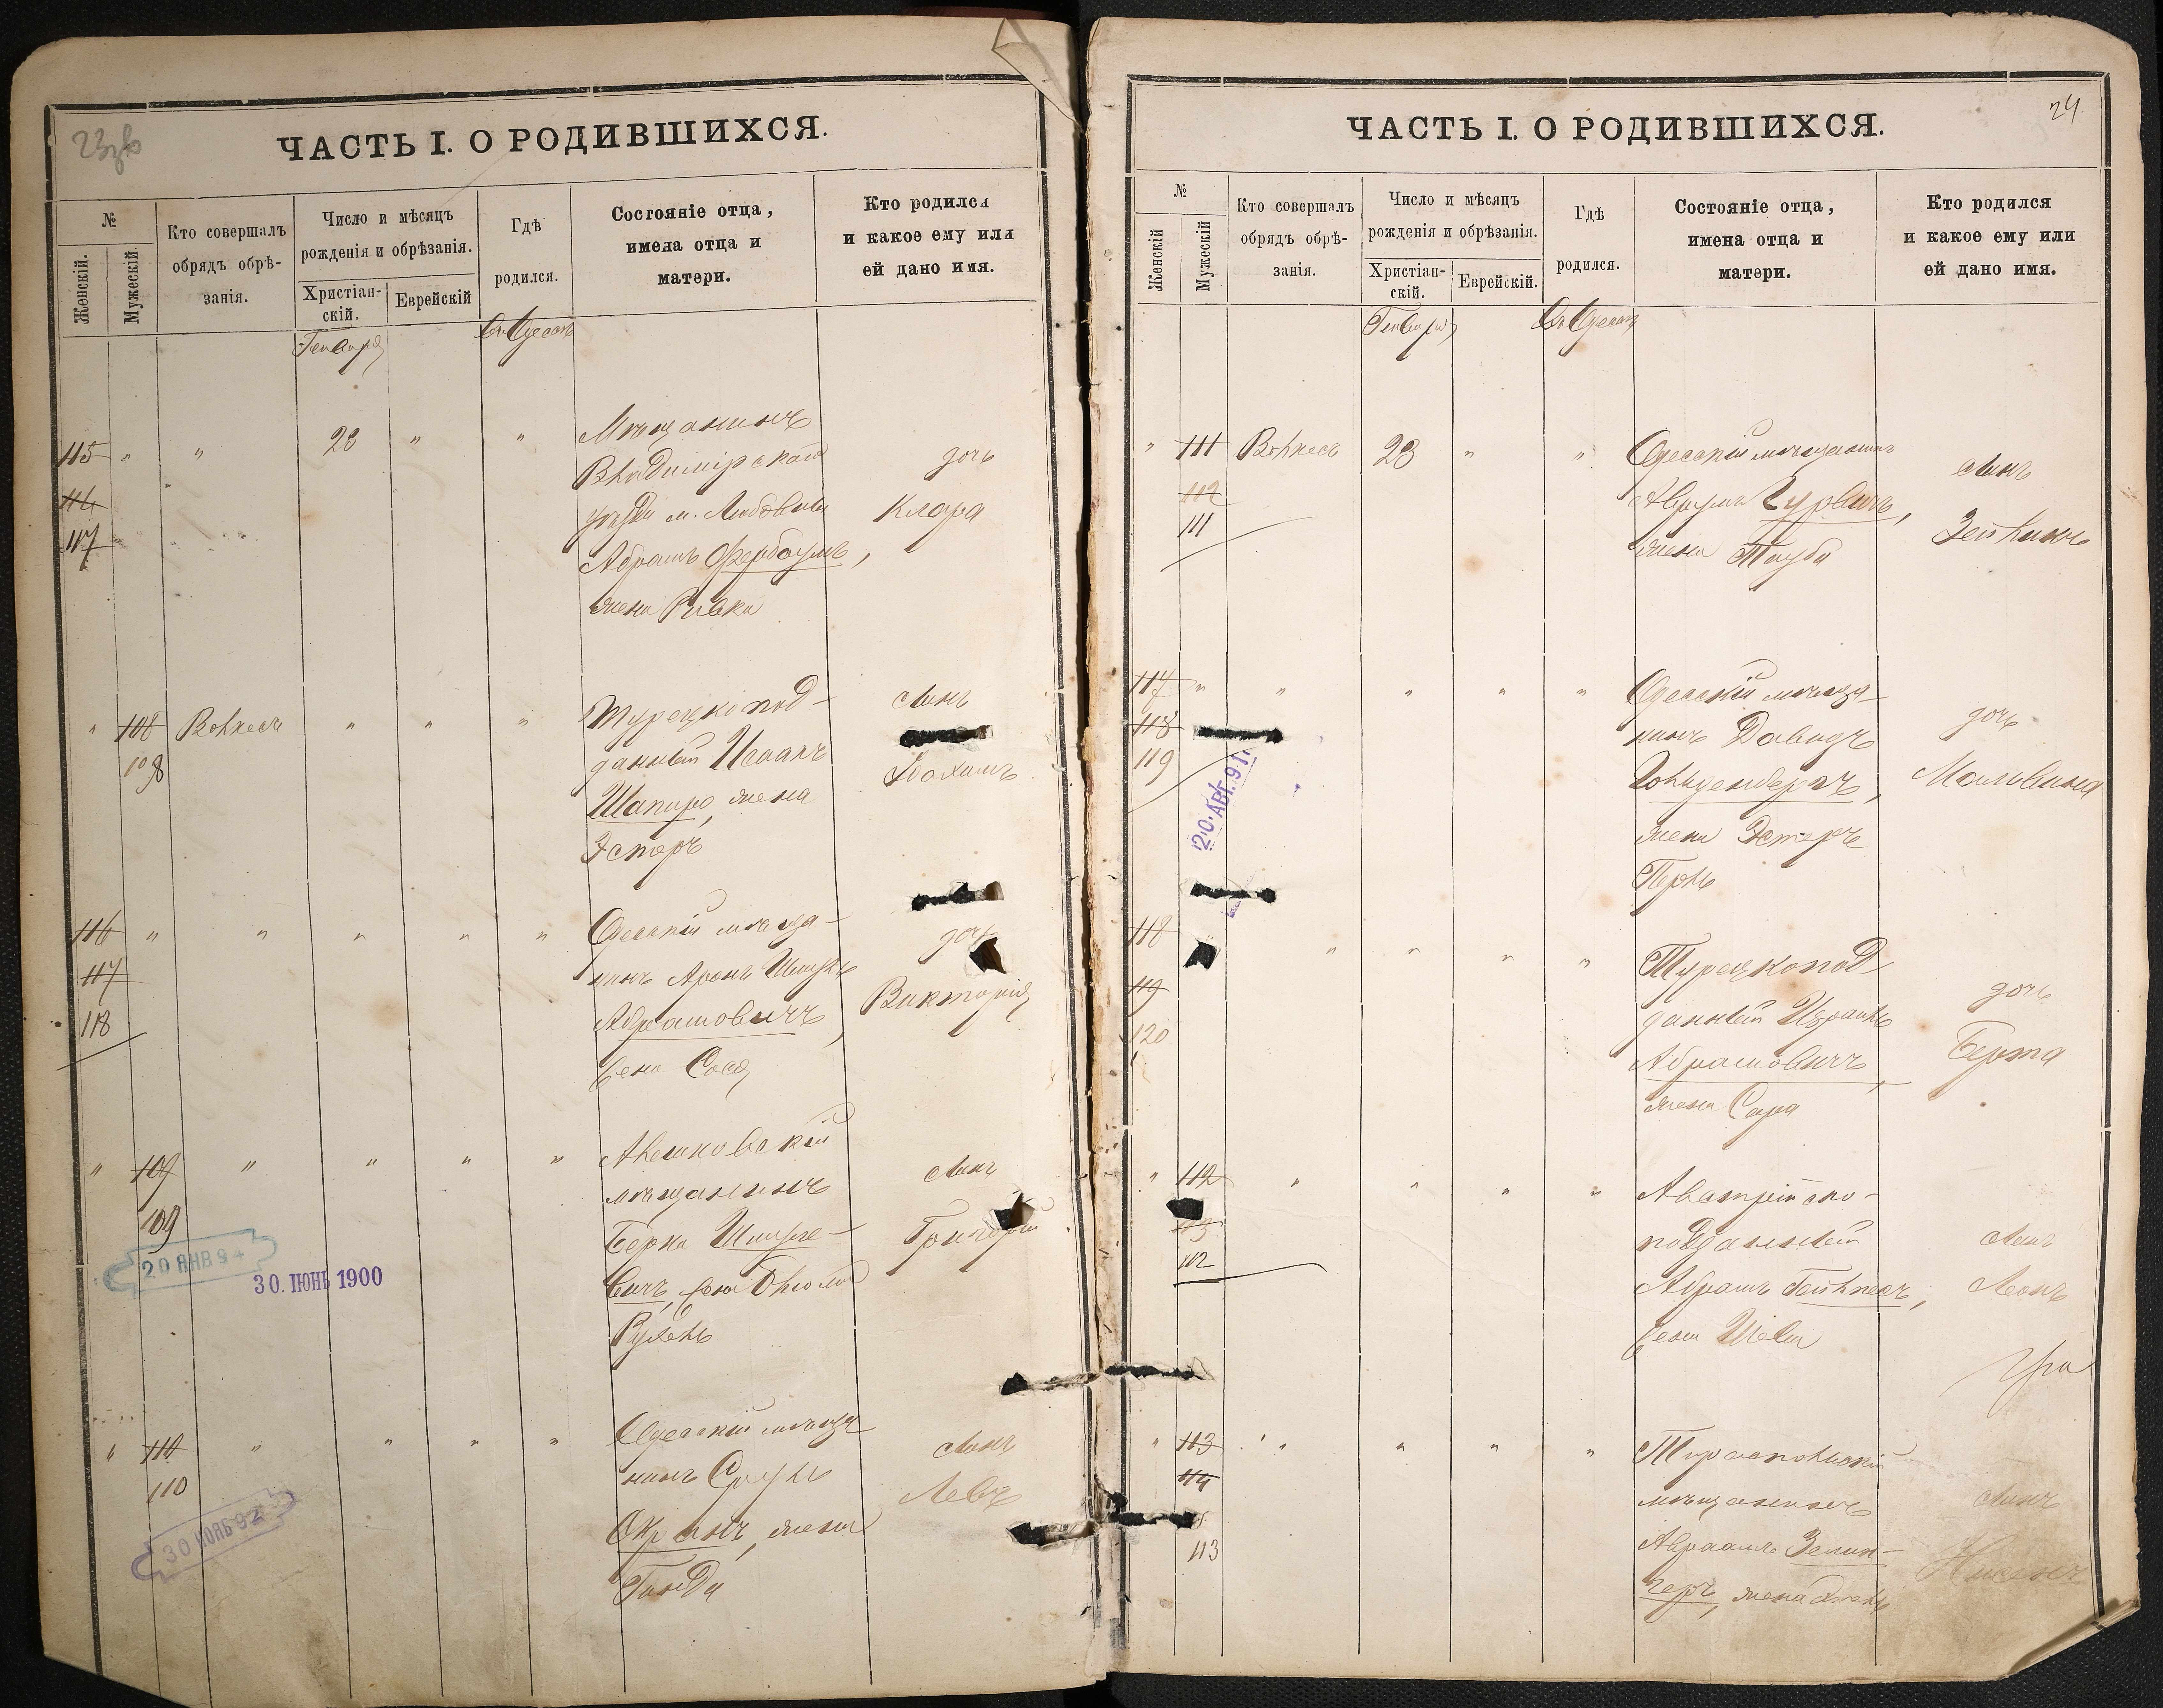 ЧАСТЬ I. О РОДИВШИХСЯ.
№
Женскій.
Мужескій.
Кто совершалъ
обрядъ обрѣ-
занія.
Число и мѣсяцъ
рожденія и обрѣзанія.
Христіан-
скій.
Еврейскій
Гдѣ
родился.
Состояніе отца,
имена отца и
матери.
Кто родился
и какое ему или
ей дано имя.
Генваря
Въ Одессѣ
115 " " 23 " "
116
117
Мѣщанинъ
Владимірскаго
уѣзда м.
Абрамъ Фербаумъ,
жена Ривка
дочь
Клара
" 108 Волкесъ " " "
108
Турецкопод-
данный Исаакъ
Шапиро, жена
Эстеръ
сынъ
Іоахимъ
116 " " " " "
117
118
Одесскій мѣща-
нинъ Аронъ Шмуль
Абрамовичъ,
жена Сося
дочь
Викторія
" 109 " " " "
109
Алешковскій
мѣщанинъ
Берка Шмуле-
вичъ, жена
Рухель
сынъ
Григорій
20 ЯНВ 94
30. ІЮНЬ 1900
" 110 " " " "
110
Одесскій мѣща
нинъ Сруль
жена
сынъ
Левъ
30 НОЯБ 92
24.
ЧАСТЬ I. О РОДИВШИХСЯ.
№
Женскій
Мужескій
Кто совершалъ
обрядъ обрѣ-
занія.
Число и мѣсяцъ
рожденія и обрѣзанія.
Христіан-
скій.
Еврейскій.
Гдѣ
родился.
Состояніе отца,
имена отца и
матери.
Кто родился
и какое ему или
ей дано имя.
Генваря
Въ Одессѣ
" 111 Волкесъ 23 " "
112
111
Одесскій мѣщанинъ
Авrумъ Гурвичъ,
жена Тауба
сынъ
Зейликъ
117 " " " " "
118
119
20. АВГ. 91
Одесскій мѣща-
нинъ Давидъ
Гольденбергъ,
жена Эстеръ
Перль
дочь
Мальвина
118 " " " "
119
120
Турецкопод-
данный Израиль
Абрамовичъ,
жена Сара
дочь
Берта
" 112 " " " "
112
Австрійско-
подданный
Абрамъ
жена Шева
сынъ
Леонъ
" 113 " " " "
114
113
Тираспольскій
мѣщанинъ
Авраамъ Зелин-
геръ, жена
сынъ